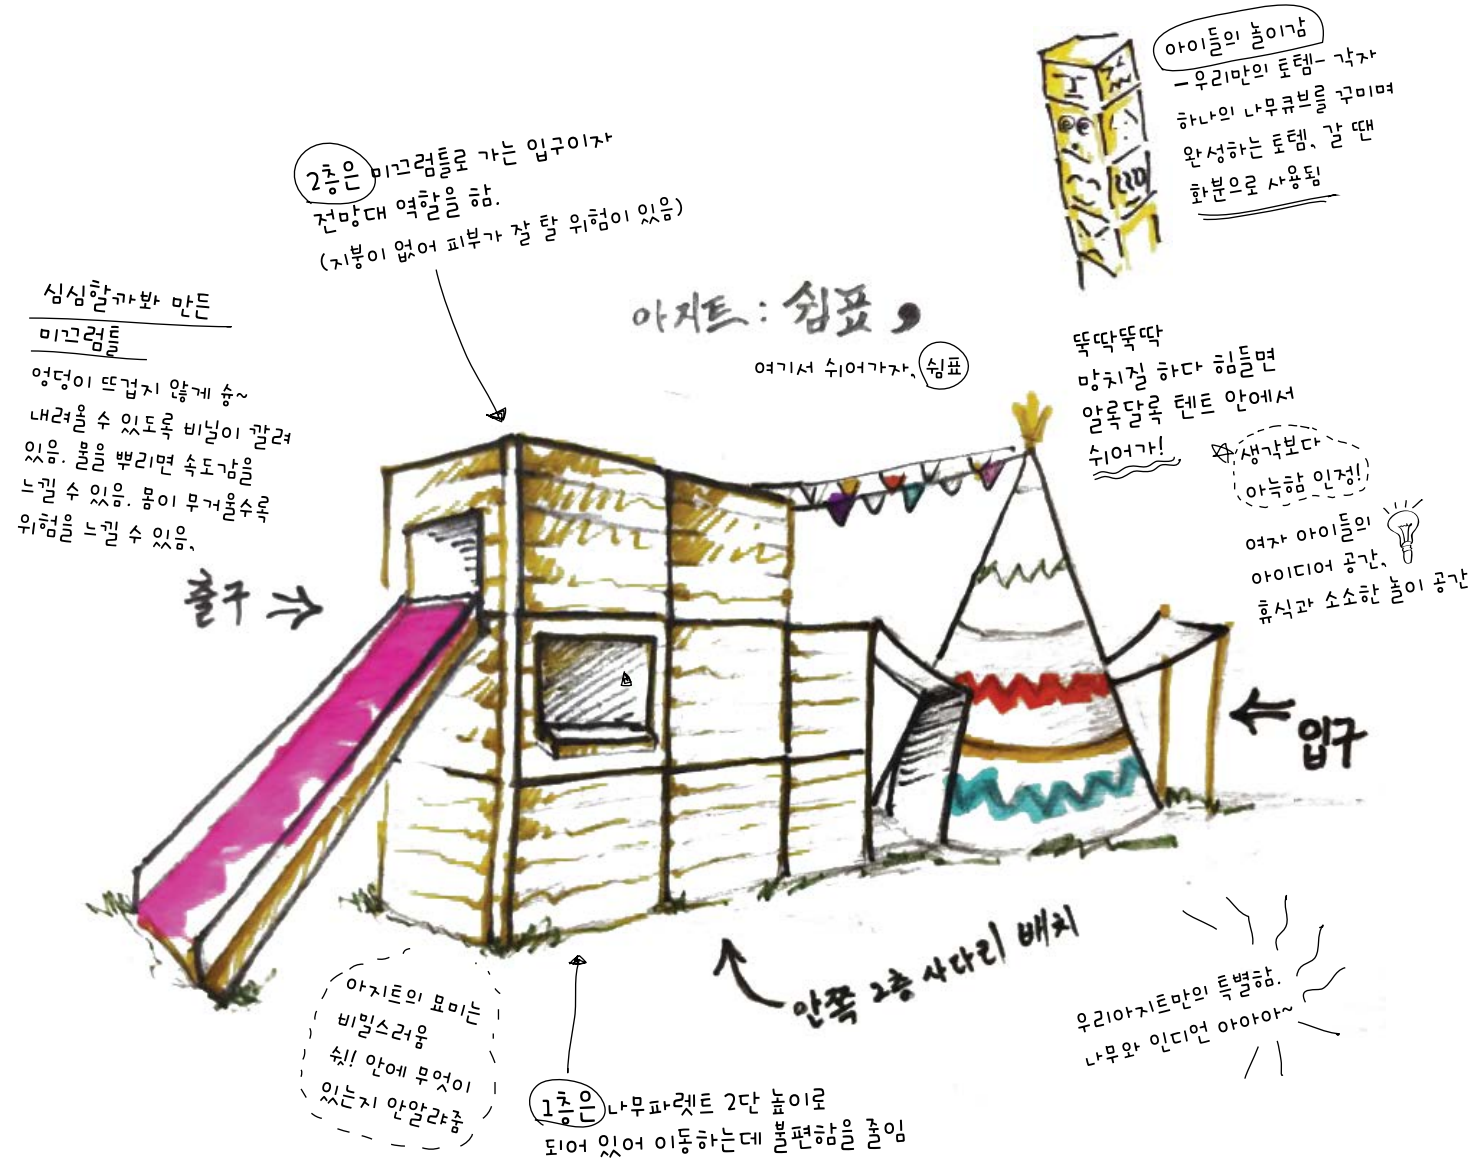 아이들의 놀이감
-우리만의 토템- 각자
하나의 나무큐브를 꾸미며
완성하는 토템, 갈 땐
화분으로 사용됨
2층은 미끄럼틀로 가는 입구이자
전망대 역할을 함.
(지붕이 없어 피부가 잘 탈 위험이 있음)
아지트 : 쉼표 ,
여기서 쉬어가자, 쉼표
심심할까봐 만든
미끄럼틀
엉덩이 뜨겁지 않게 슝~
내려올 수 있도록 비닐이 깔려
있음. 물을 뿌리면 속도감을
느낄 수 있음. 몸이 무거울수록
위험을 느낄 수 있음.
뚝딱뚝딱
망치질 하다 힘들면
알록달록 텐트 안에서
쉬어가!
생각보다
아늑함 인정!
여자 아이들의
아이디어 공간,
휴식과 소소한 놀이 공간
출구
입구
안쪽 2층 사다리 배치
아지트의 묘미는
비밀스러움
쉿! 안에 무엇이
있는지 안알랴줌
1층은 나무파렛트 2단 높이로
되어 있어 이동하는데 불편함을 줄임
우리아지트만의 특별함.
나무와 인디언 아아아~